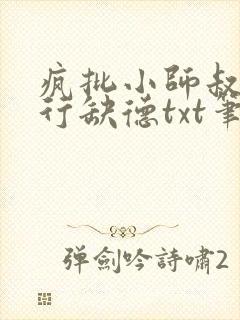 疯批小师叔
行缺德txt笔
弹劍吟詩嘯2